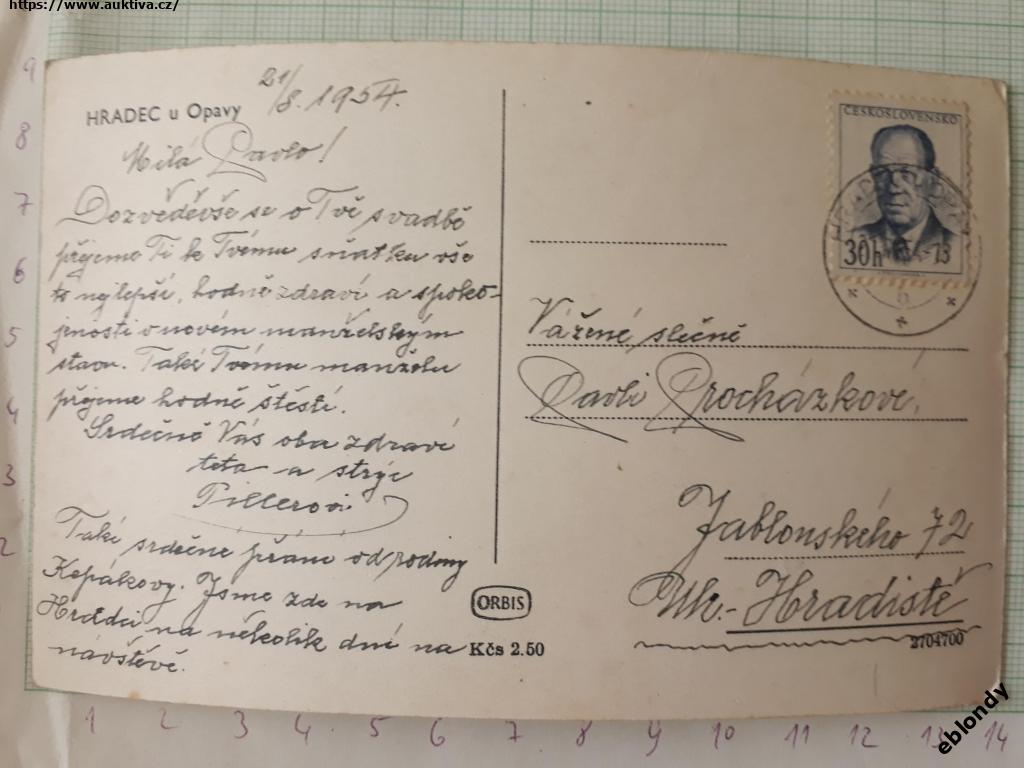 https://www.auktiva.cz/
HRADEC u Opavy
21/8. 1954.
Milá Pavlo!
Dozvěděvše se o Tvě svadbě
přejeme Ti k Tvému sňatku vše
to nejlepší, hodně zdraví a spoko-
jenosti v novém manželským
stavu. Také Tvému manželu
přejeme hodně štěstí.
Srdečně Vás oba zdraví
teta a strýc
Pillerovi
Také srdečné přání od rodiny
Kopákovy. Jsme zde na
Hradci na několik dní na
návštěvě.
ORBIS
Kčs 2.50
ČESKOSLOVENSKO
30h
-13
Vážené slečně
Pavli Procházkové,
Jablonského 72
Uh.-Hradiště
2704700
9
8
7
6
5
4
3
2
1 2 3 4 5 6 7 8 9 10 11 12 13 14
eblondy